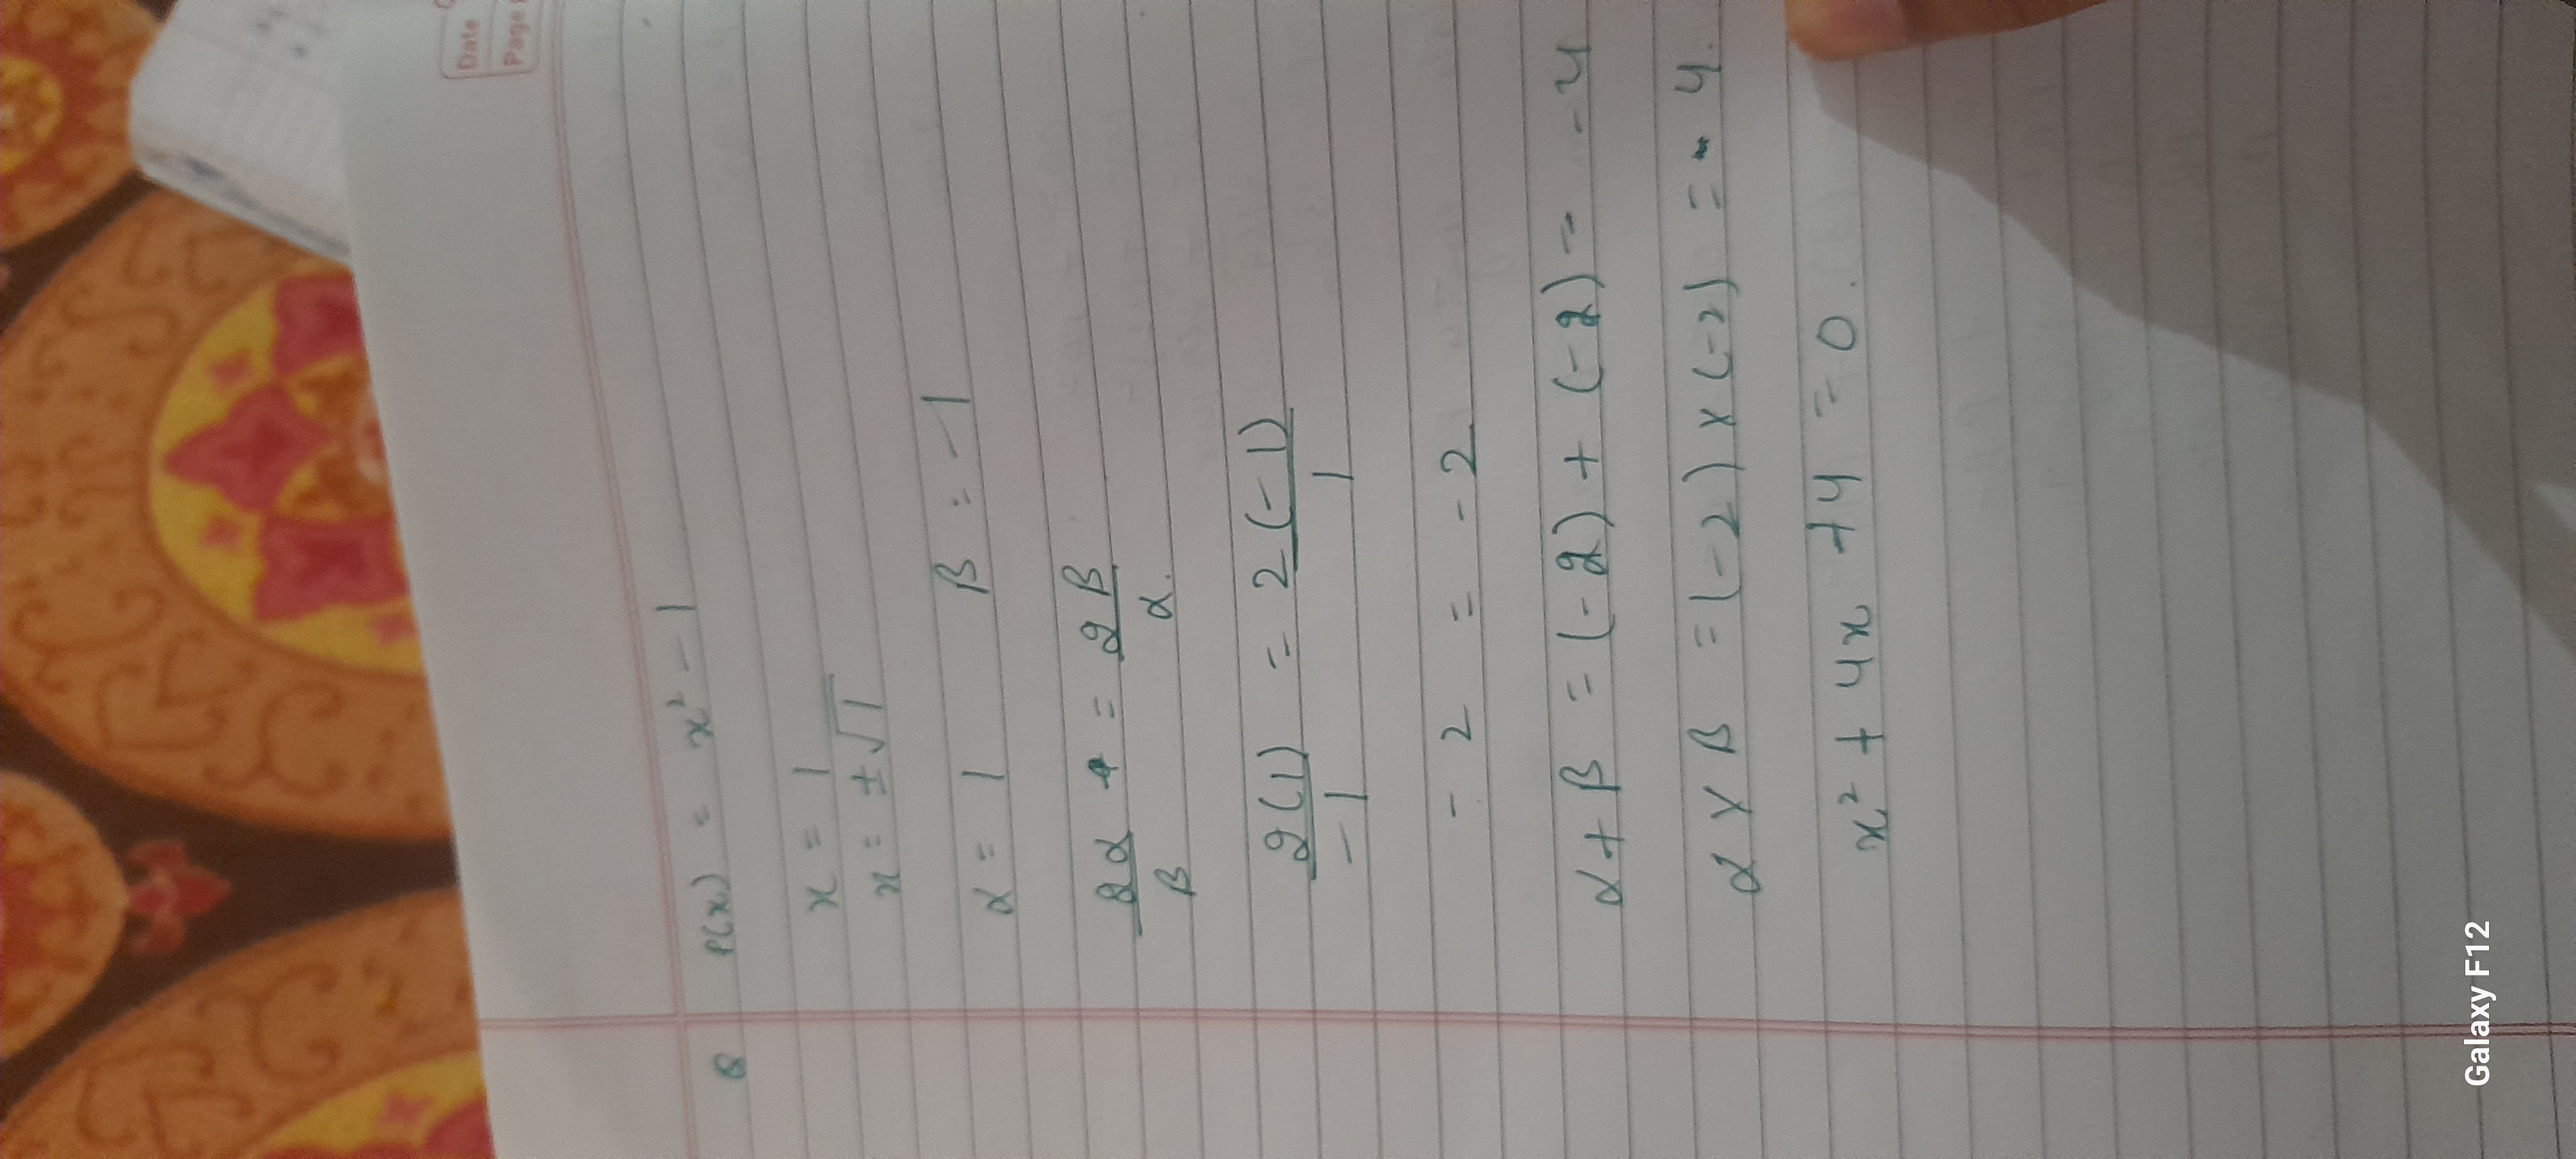 Date
Page
8 P(x) = x² - 1
x = 1
x = ± √1
α = 1 β = -1
2α/β = 2β/α.
2(1)/-1 = 2(-1)/1
- 2 = - 2
α + β = (-2) + (-2) = -4
α × β = (-2) × (-2) = 4.
x² + 4x + 4 = 0.
Galaxy F12